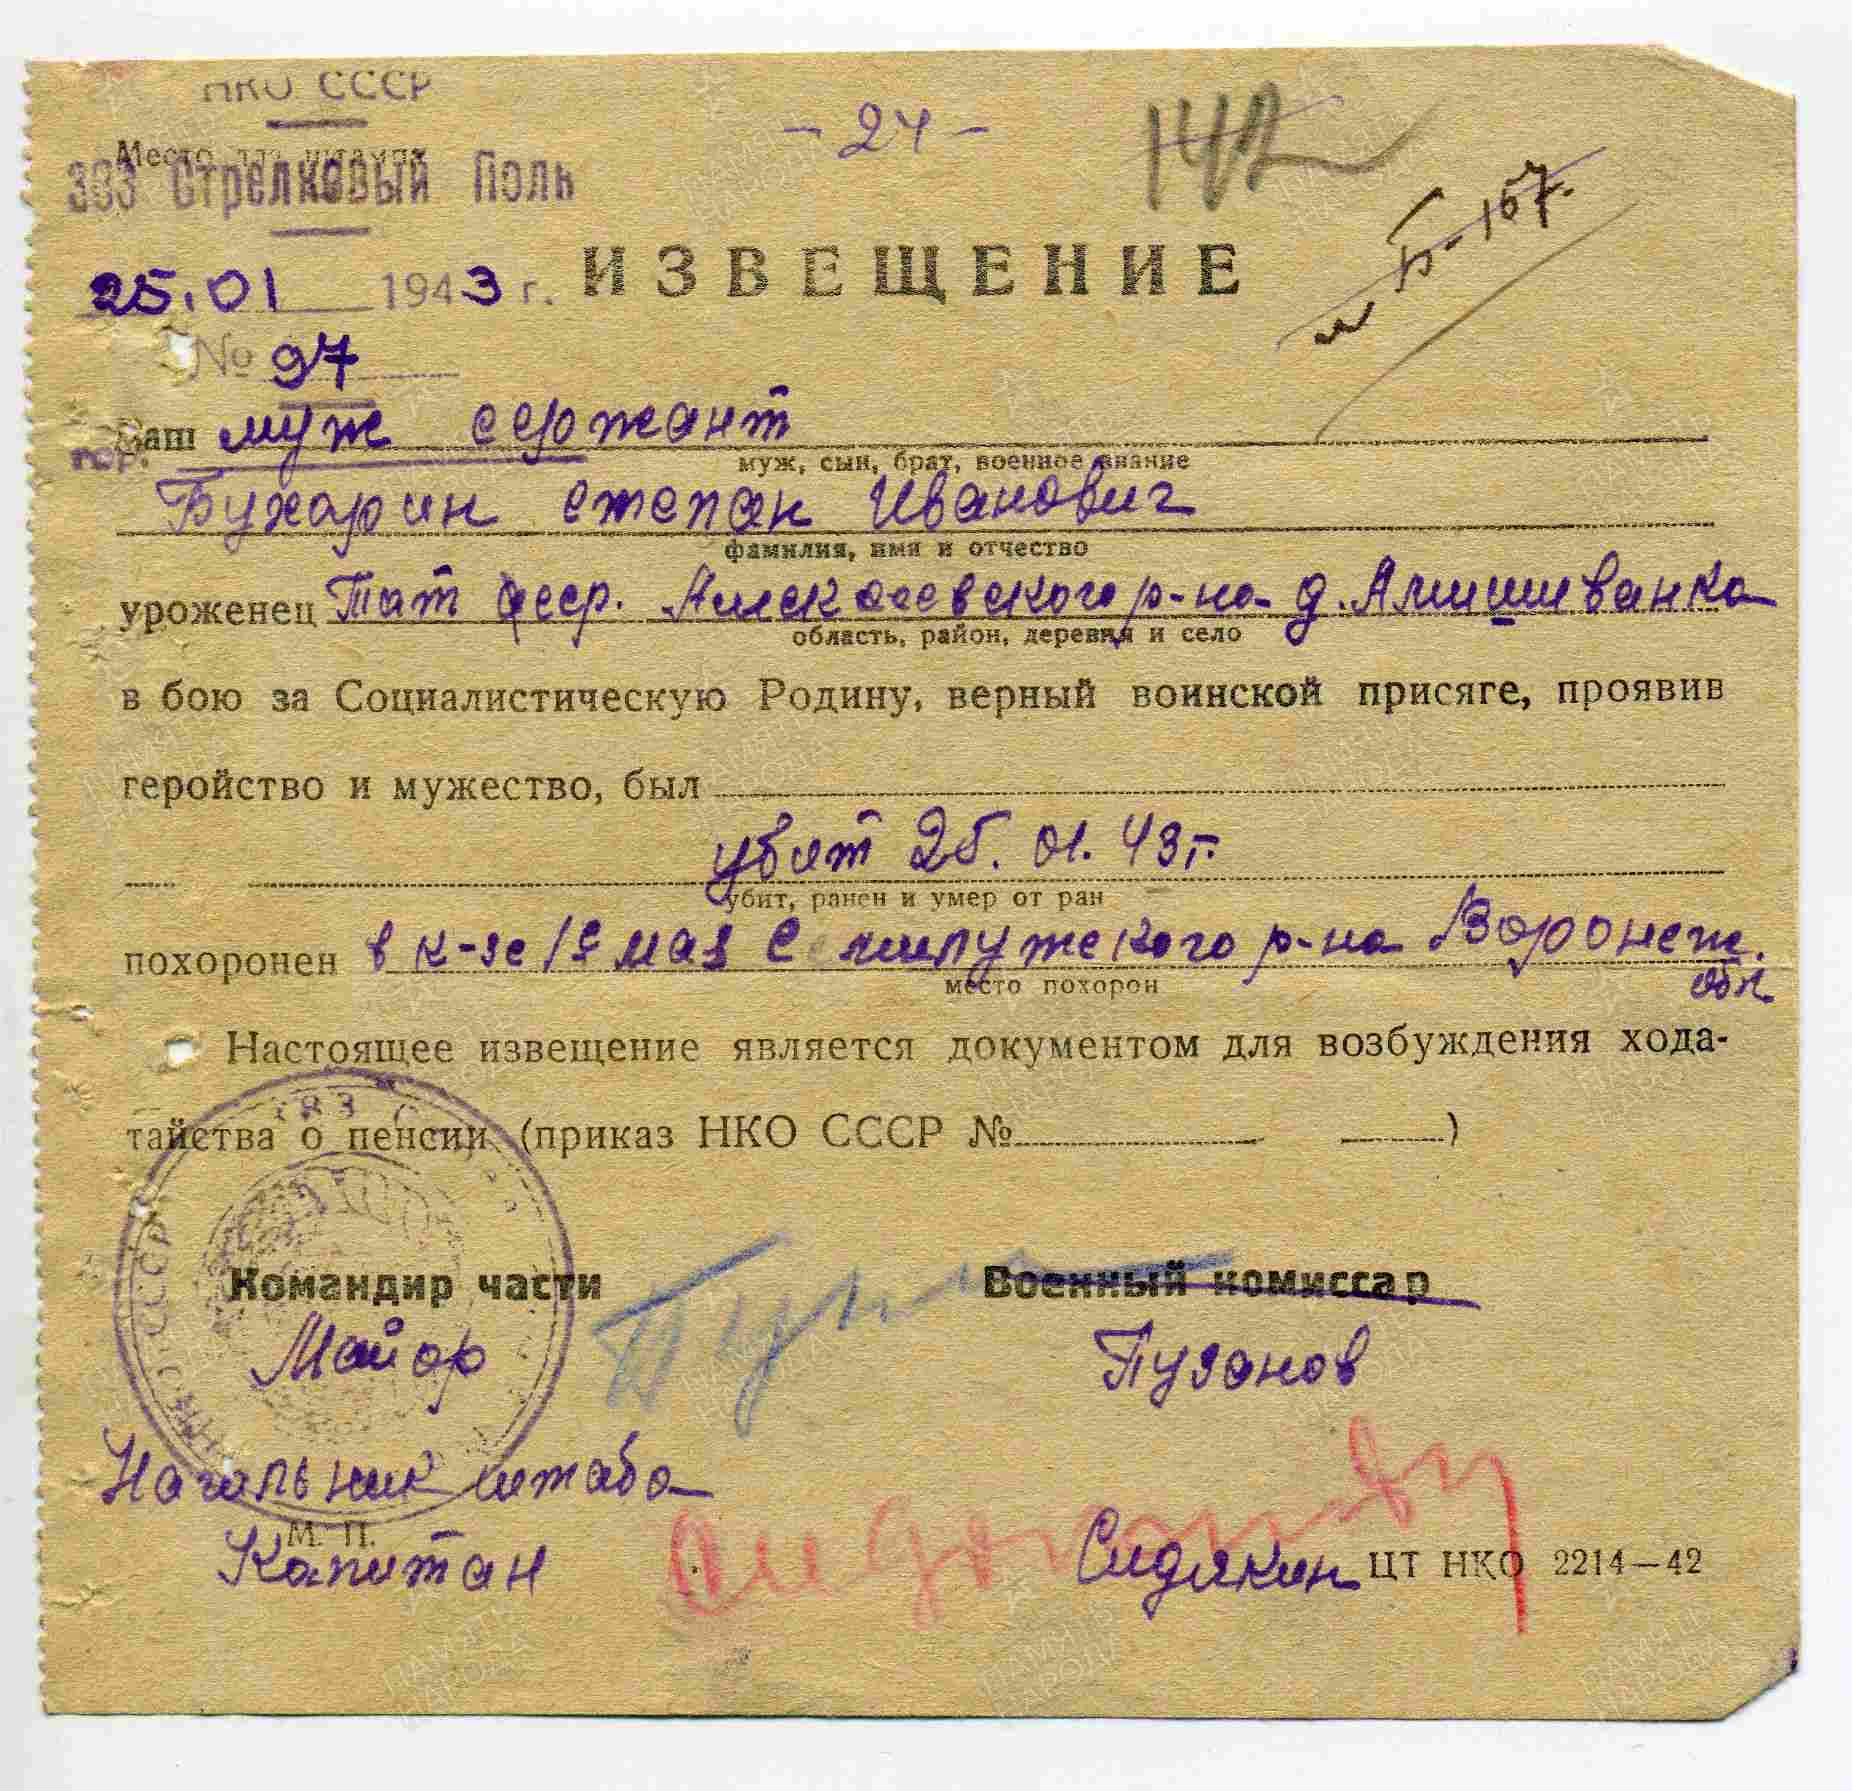 НКО СССР
- 24 -
142
383 Стрелковый Полк
Б-167.
ИЗВЕЩЕНИЕ
25.01 1943 г.
№ 97
Ваш муж сержант
гор.
муж, сын, брат, военное звание
Бухарин степан Иванович
фамилия, имя и отчество
уроженец Тат асср. Алексеевского р-на д.
область, район, деревня и село
в бою за Социалистическую Родину, верный воинской присяге, проявив
геройство и мужество, был
убит 25.01.43г.
убит, ранен и умер от ран
похоронен в к-зе 1е мая Семилужского р-на Воронеж.
обл.
место похорон
Настоящее извещение является документом для возбуждения хода-
тайства о пенсии (приказ НКО СССР № )
383
НКО СССР
Командир части
Военный комиссар
Майор
Пузанов
Начальник штаба
М. П.
Капитан
Сидякин
ЦТ НКО 2214—42
ПАМЯТЬ НАРОДА